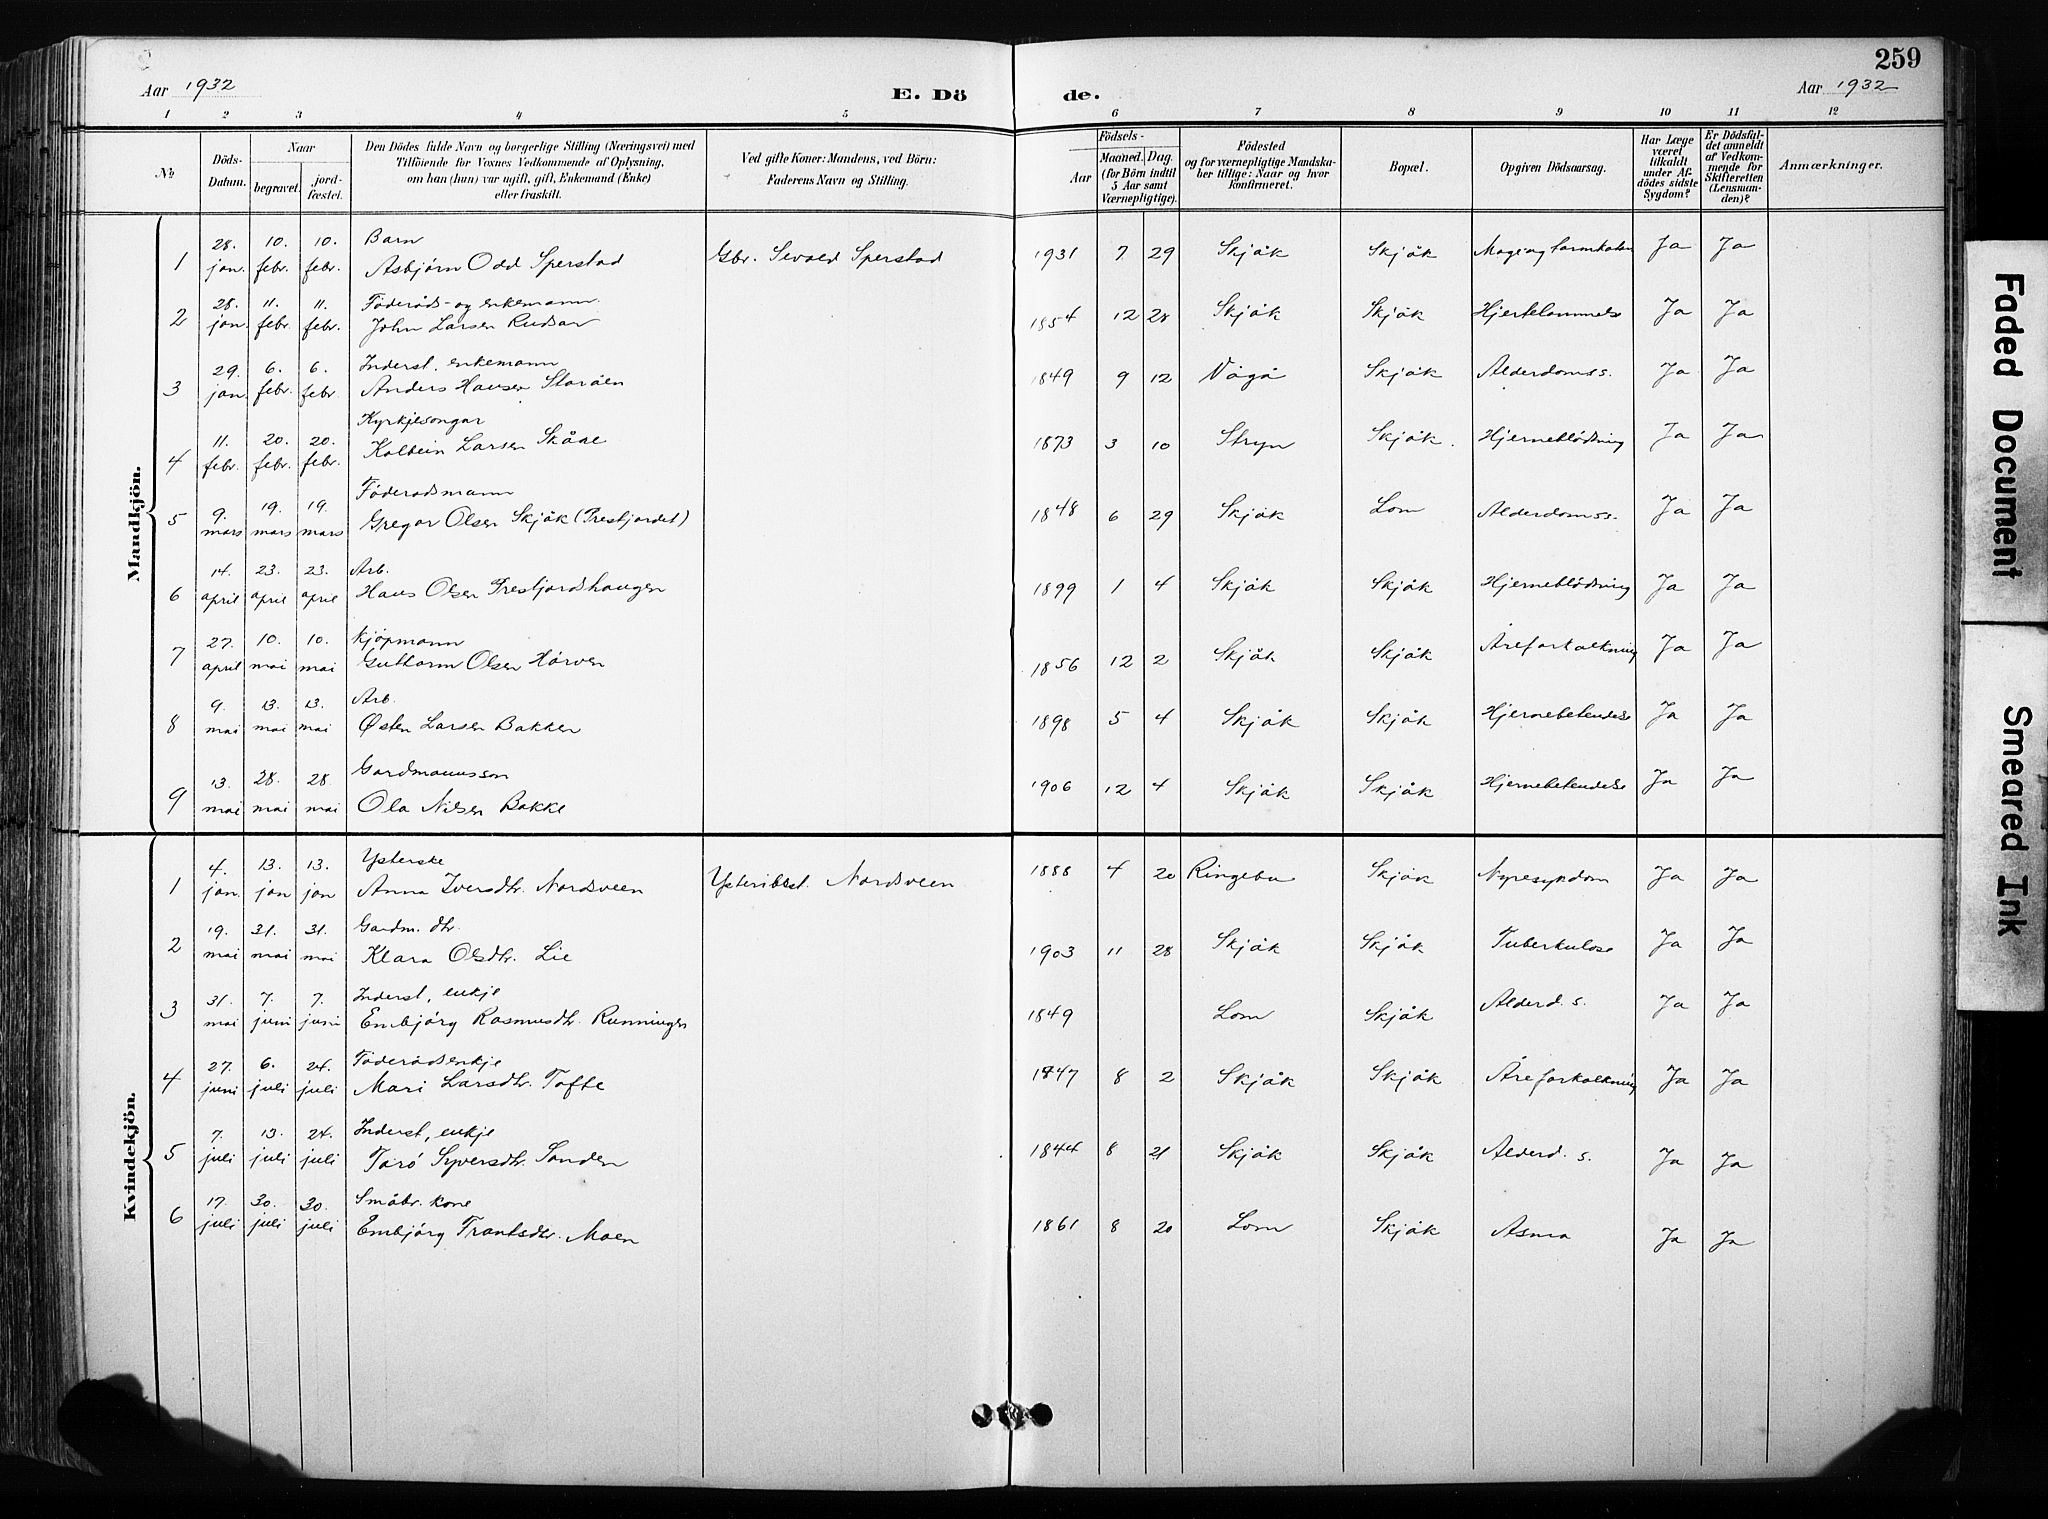 259
Aar 1932 E. Dö de. Aar 1932
1 2 3 4 5 6 7 8 9 10 11 12
No
Döds-Datum.
Naar
begravet.
jord-fæstet.
Den Dödes fulde Navn og borgerlige Stilling (Næringsvei) med
Tilföiende for Voxnes Vedkommende af Oplysning,
om han (hun) var ugift, gift, Enkemand (Enke)
eller fraskilt.
Ved gifte Koner: Mandens, ved Börn:
Faderens Navn og Stilling.
Födsels-
Aar
Maaned. Dag.
(for Börn indtil
5 Aar samt
Værnepligtige).
Födested
og for værnepligtige Mandska-
ber tillige: Naar og hvor
konfirmeret.
Bopæl.
Opgiven Dödsaarsag.
Har Læge
været
tilkaldt
under Af-
dödes sidste
Sygdom?
Er Dödsfal-
det anmeldt
af Vedkom-
mende for
Skifteretten
(Lensman-
den)?
Anmærkninger.
Mandkjön.
1 28. jan. 10. febr. 10. febr. Barn
Asbjörn Odd Sperstad Gbr. Sevald Sperstad 1931 7 29 Skjåk Skjåk Mage og tarmkatar Ja Ja
2 28. jan. 11. febr. 11. febr. Föderåds- og enkemann.
John Larsen Rudsar 1854 12 28 Skjåk Skjåk Hjertelammelse Ja Ja
3 29. jan. 6. febr. 6. febr. Inderst, enkemann
Anders Hansen Storöen 1849 9 12 Vågå Skjåk Alderdomss. Ja Ja
4 11. febr. 20. febr. 20. febr. Kyrkjesongar
Kolbein Larsen Skåne 1873 3 10 Stryn Skjåk. Hjerneblödning Ja Ja
5 9. mars 19. mars 19. mars Föderadsmann
Gregar Olsen Skjåk (Prestjordet) 1848 6 29 Skjåk Lom Alderdomss. Ja Ja
6 14. april 23. april 23. april Arb.
Hans Olsen Prestjordshaugen 1899 1 4 Skjåk Skjåk Hjerneblödning Ja Ja
7 27. april 10. mai 10. mai Kjöpmann
Guttorm Olsen Hörven 1856 12 2 Skjåk Skjåk Åreforkalkning Ja Ja
8 9. mai 13. mai 13. mai Arb.
Østen Larsen Bakken 1898 5 4 Skjåk Skjåk Hjernebetendelse Ja Ja
9 13. mai 28. mai 28. mai Gardmannsson
Ola Nilsen Bakke 1906 12 4 Skjåk Skjåk Hjernebetendelse Ja Ja
Kvindekjön.
1 4. jan. 13. jan 13. jan Ysterske
Anna Iversdtr. Nordsveen Nordsveen 1888 4 20 Ringebu Skjåk Nyresykdom Ja Ja
2 19. mai 31. mai 31. mai Gardm. dtr.
Klara Olsdtr. Lie 1903 11 28 Skjåk Skjåk Tuberkulose Ja Ja
3 31. mai 7. juni 7. juni Inderst, enkje
Embjörg Rasmusdtr. Runningen 1849 Lom Skjåk Alderd. s. Ja Ja
4 27. juni 6. juli 24. juli Föderådsenkje
Mari Larsdtr. Tofte 1847 8 2 Skjåk Skjåk Åreforkalkning Ja Ja
5 7. juli 13. juli 24. juli Inderst, enkje
Torö Syversdtr. Sanden 1844 8 21 Skjåk Skjåk Alderd. s. Ja Ja
6 17. juli 30. juli 30. juli Småbr. kone
Embjörg Frantsdtr. Moen 1861 8 20 Lom Skjåk Asma Ja Ja
Faded Document
Smeared Ink